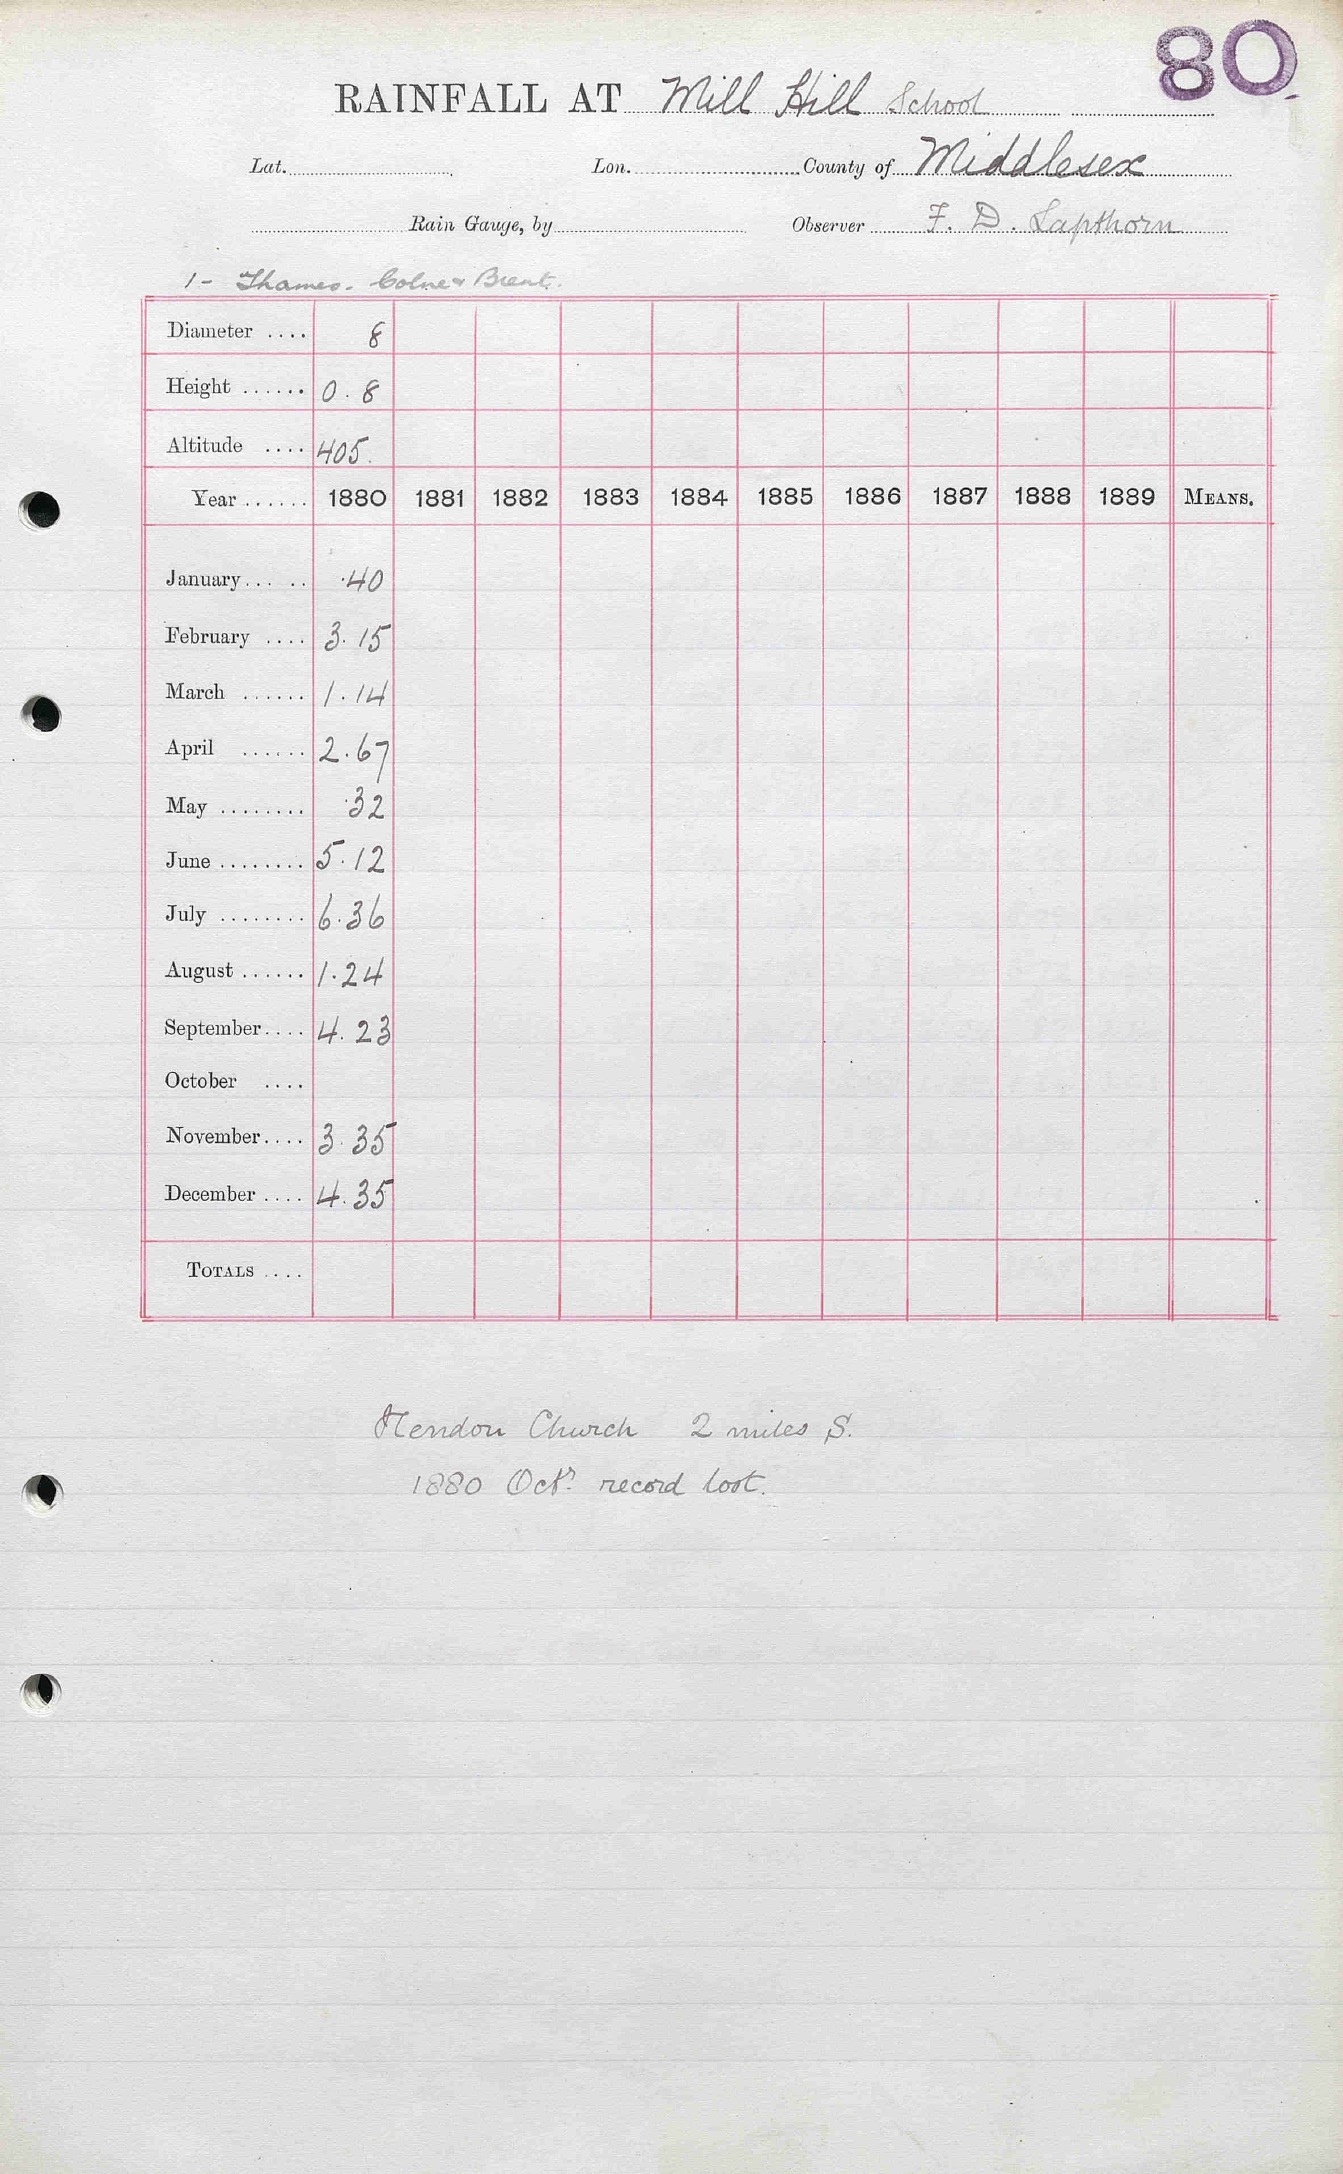 80
RAINFALL AT Mill Hill School
Lat. Lon. County of Middlesex
Rain Gauge, by Observer F. D. Lapthorn
1 - Thames. Colne & Brent.
Diameter .... 8
Height ...... 0.8
Altitude .... 405.
Year ...... 1880 1881 1882 1883 1884 1885 1886 1887 1888 1889 MEANS.
January... .. .40
February .... 3.15
March ...... 1.14
April ...... 2.67
May ........ .32
June ........ 5.12
July ........ 6.36
August ...... 1.24
September.... 4.23
October ....
November.... 3.35
December .... 4.35
TOTALS ....
Hendon Church 2 miles S.
1880 Octr. record lost.